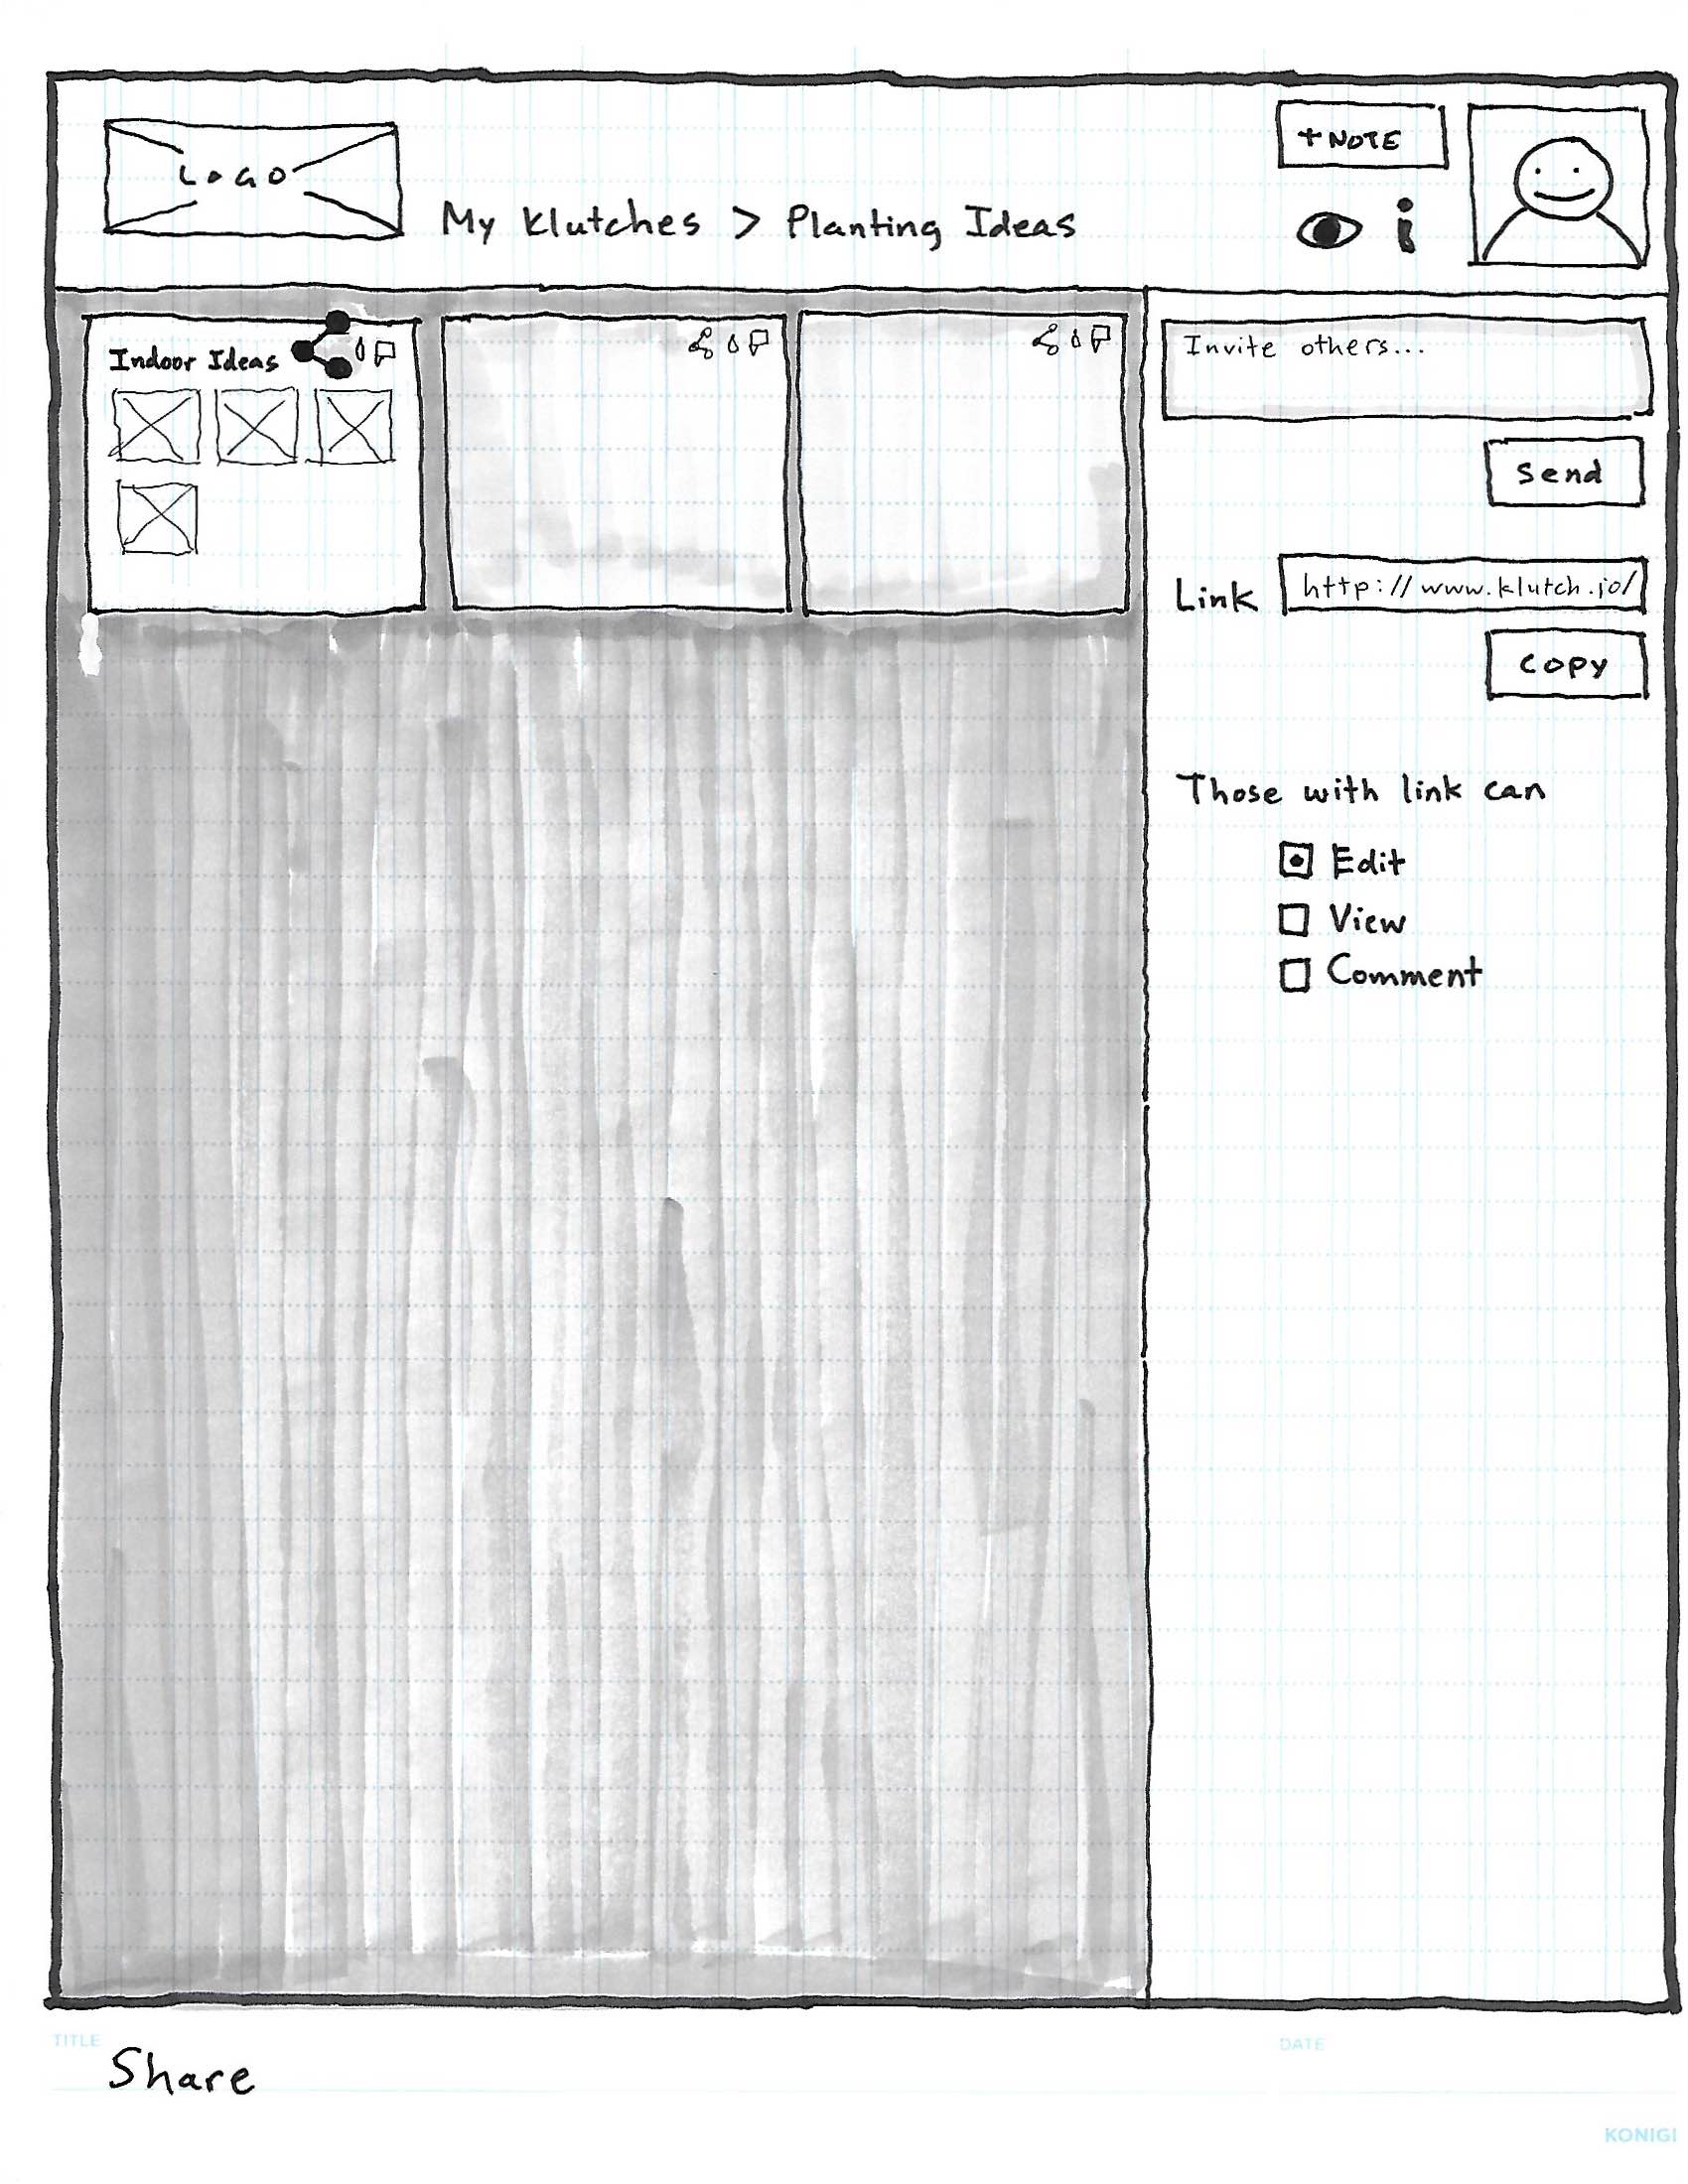 LOGO
My Klutches > Planting Ideas
+ NOTE
Indoor Ideas
Invite others...
Send
Link http://www.klutch.io/
COPY
Those with link can
Edit
View
Comment
TITLE
Share
DATE
KONIGI